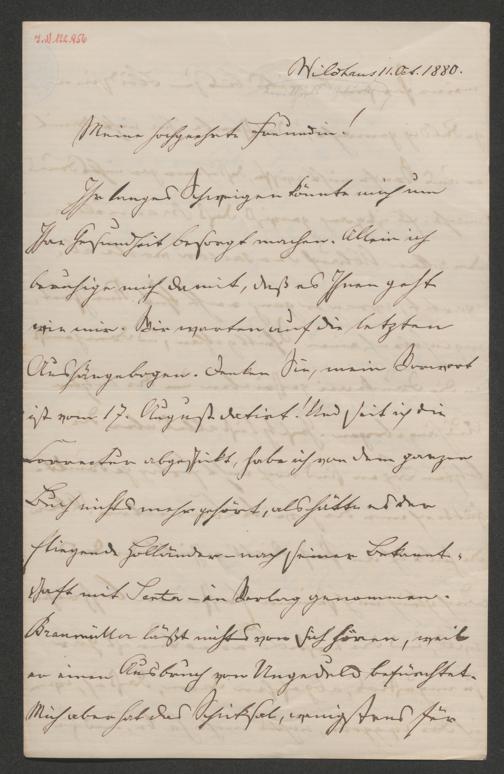 I.N. 122.956
Wildhaus 11. Oct. 1880.
Meine hochgeehrte Freundin!
Ihr langes Schweigen könnte mich um
Ihre Gesundheit besorgt machen. Allein ich
beruhige mich damit, daß es Ihnen geht
wie mir. Wir warten auf die letzten
Aushängebogen. Denken Sie, mein Vorwort
ist vom 17. August datirt! Und seit ich die
Correctur abgeschickt, habe ich von dem ganzen
Buch nichts mehr gehört, als hätte es der
fliegende Holländer – nach seiner Bekannt-
schaft mit Senta – in Verlag genommen.
Braumüller läßt nichts von sich hören, weil
er einen Ausbruch von Ungeduld befürchtet.
Mich aber hat das Schicksal, wenigstens für